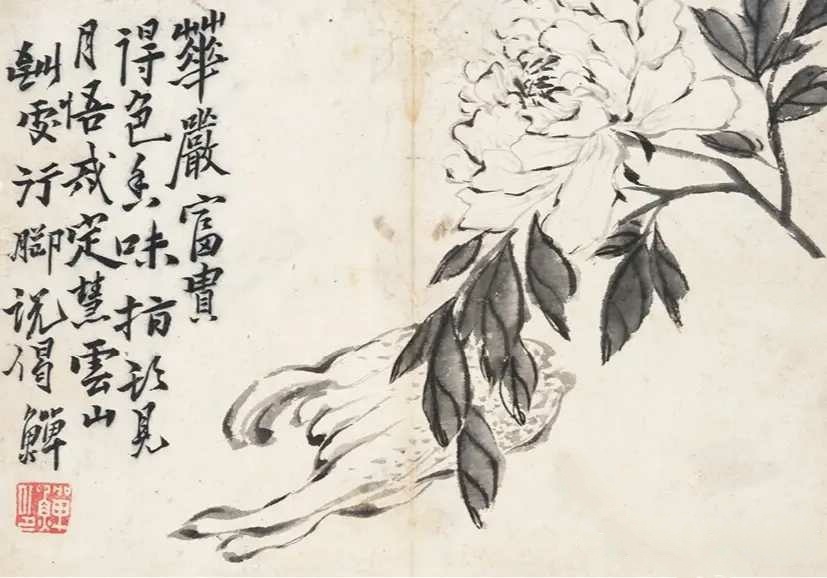 華嚴富貴
得色香味指頭見
月悟戒定慧雲山
處行脚說偈鱓